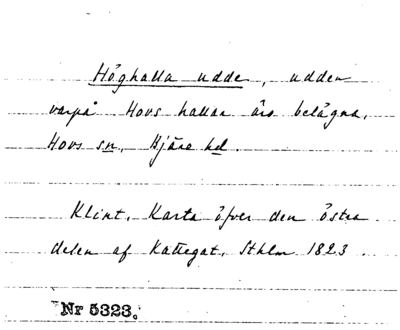 Höghalla udde, udden
varpå Hovs hallar äro belägna,
Hovs sn, Bjäre hd.
Klint, Karta öfver den östra
delen af Kattegat. Sthlm 1823.
Nr 5323.